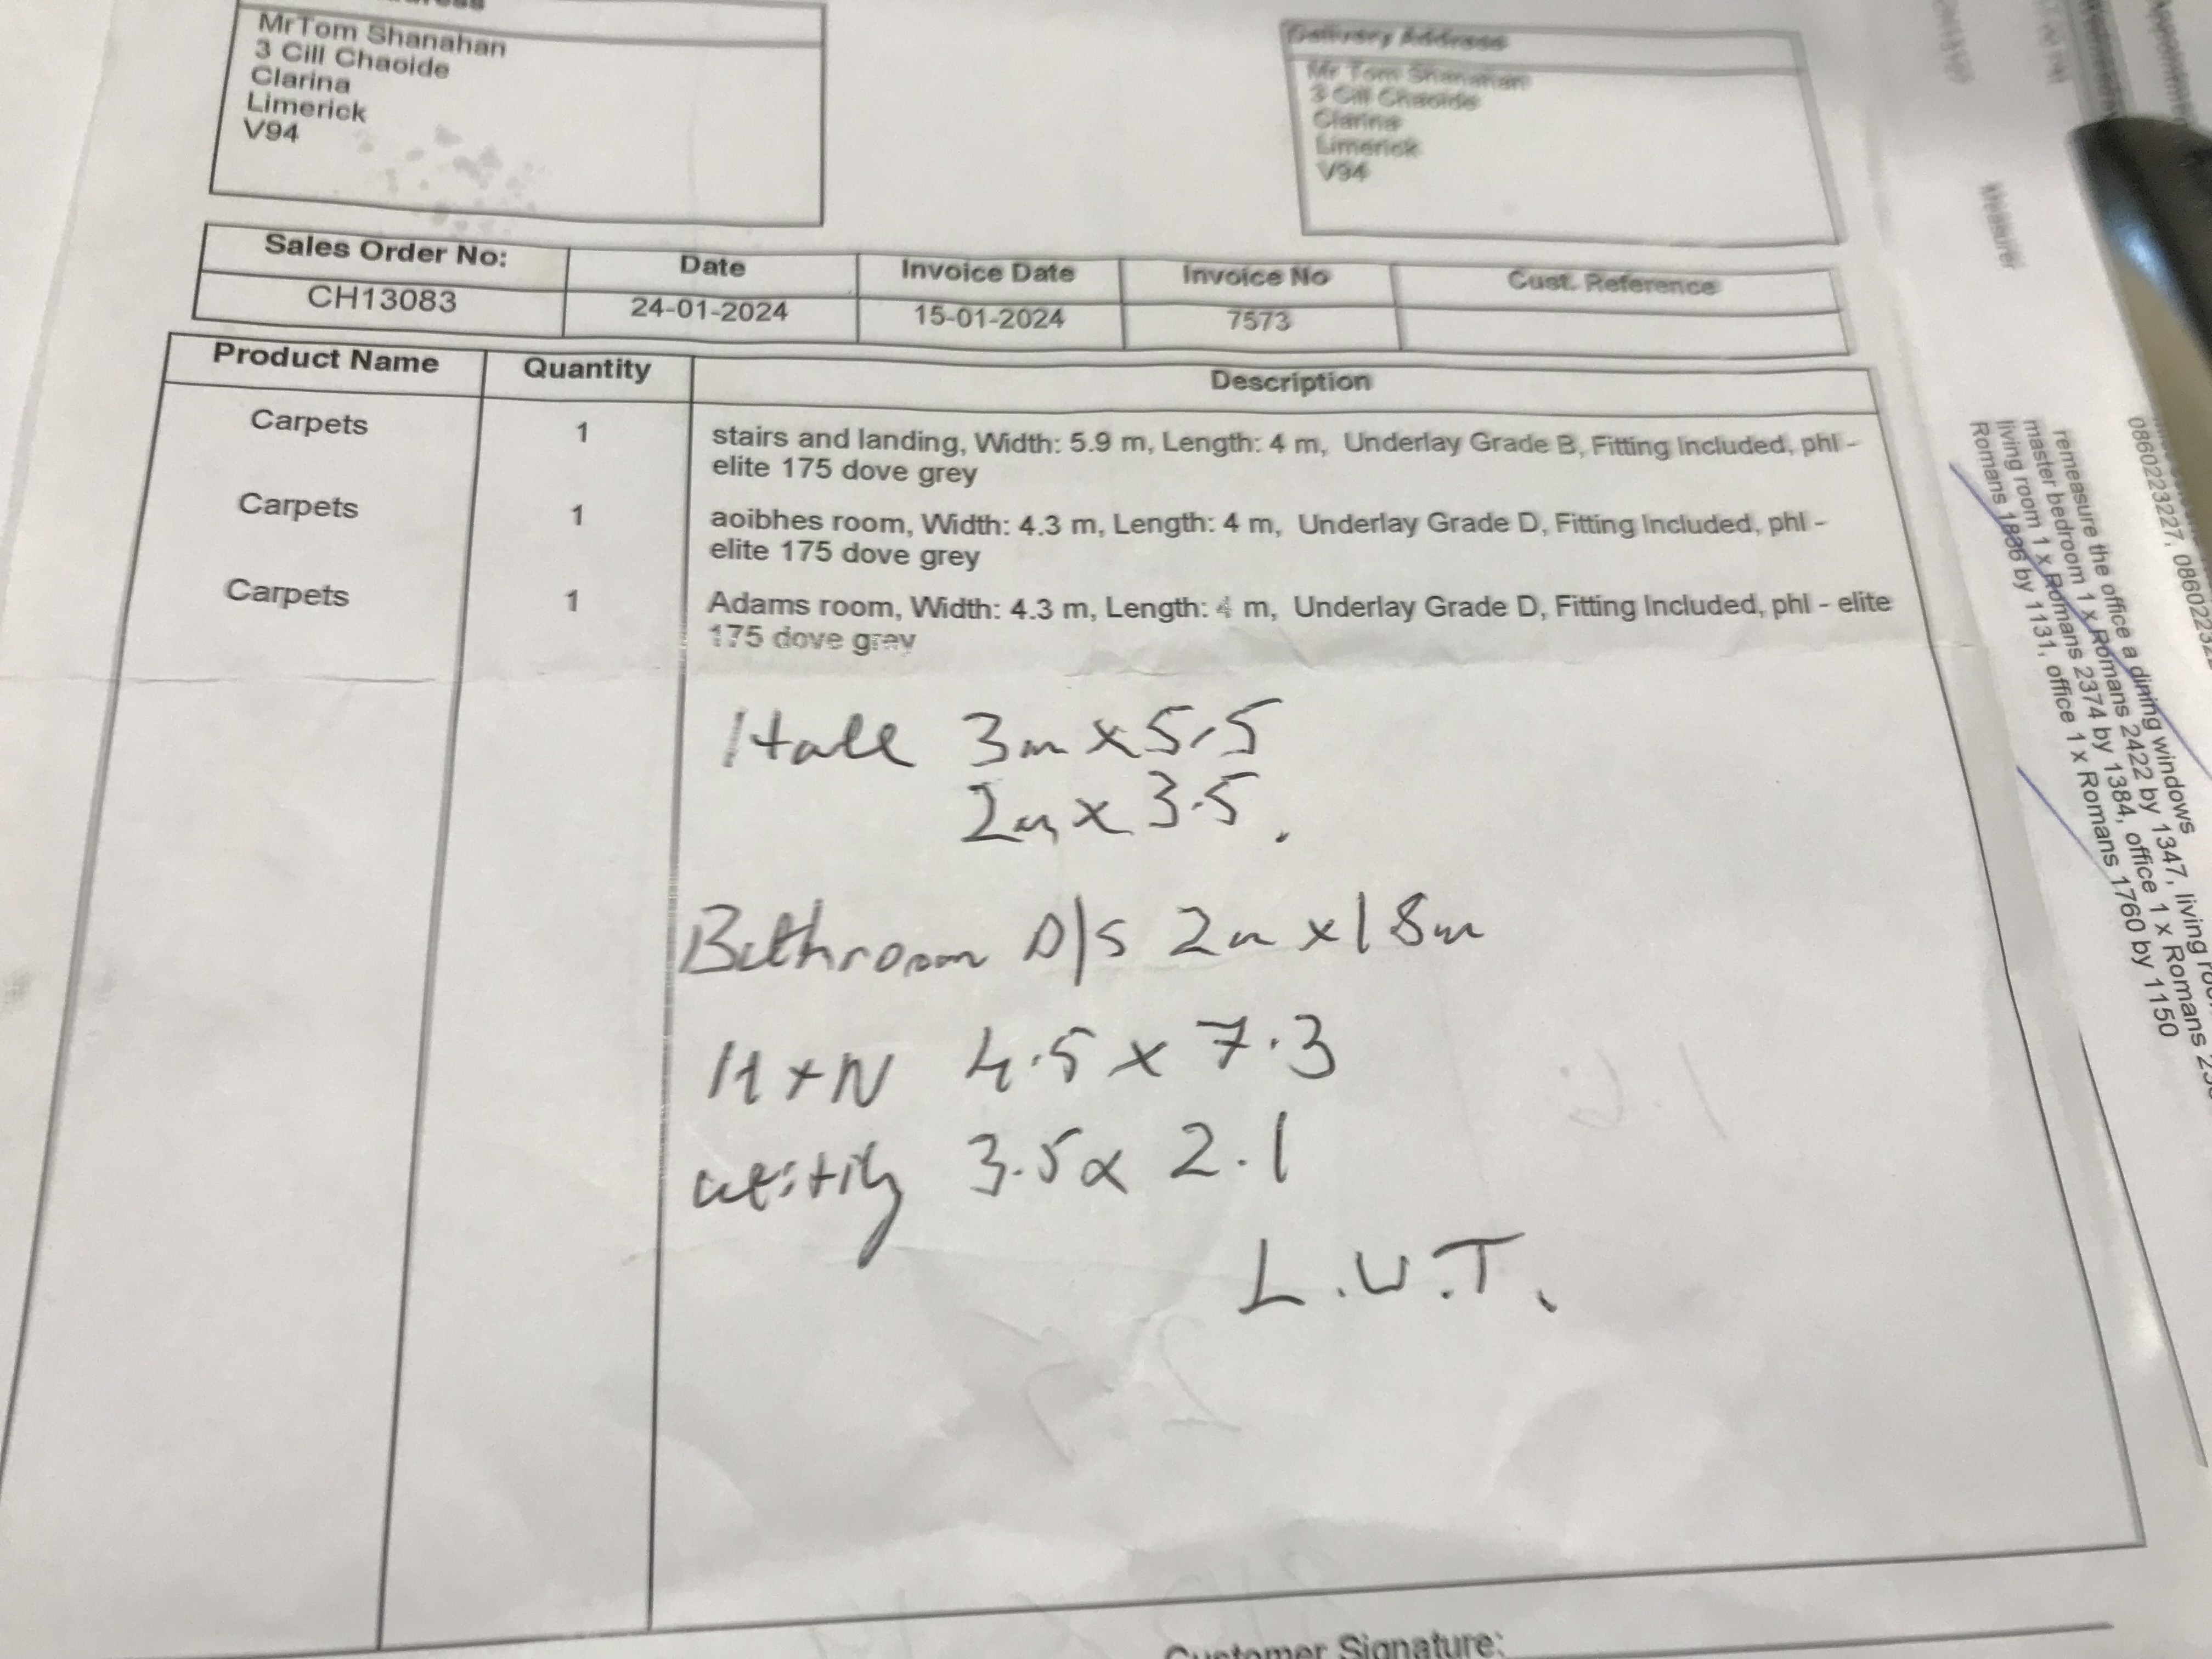 Mr Tom Shanahan
3 Cill Chaoide
Clarina
Limerick
V94
Delivery Address
Mr Tom Shanahan
3 Cill Chaoide
Clarina
Limerick
V94
Sales Order No:
Date
Invoice Date
Invoice No
Cust. Reference
CH13083
24-01-2024
15-01-2024
7573
Product Name
Quantity
Description
Carpets
1
stairs and landing, Width: 5.9 m, Length: 4 m, Underlay Grade B, Fitting Included, phl -
elite 175 dove grey
Carpets
1
aoibhes room, Width: 4.3 m, Length: 4 m, Underlay Grade D, Fitting Included, phl -
elite 175 dove grey
Carpets
1
Adams room, Width: 4.3 m, Length: 4 m, Underlay Grade D, Fitting Included, phl - elite
175 dove grey
Hall 3m x 5.5
2m x 3.5.
Bathroom D/S 2m x 1 8m
H+N 4.5 x 7.3
utility 3.5 x 2.1
L.V.T.
Customer Signature:
Measurer
0860223227,
remeasure the office a dining windows
master bedroom 1 x Romans 2422 by 1347, living
living room 1 x Romans 2374 by 1384, office 1 x Romans
Romans 1836 by 1131, office 1 x Romans 1760 by 1150